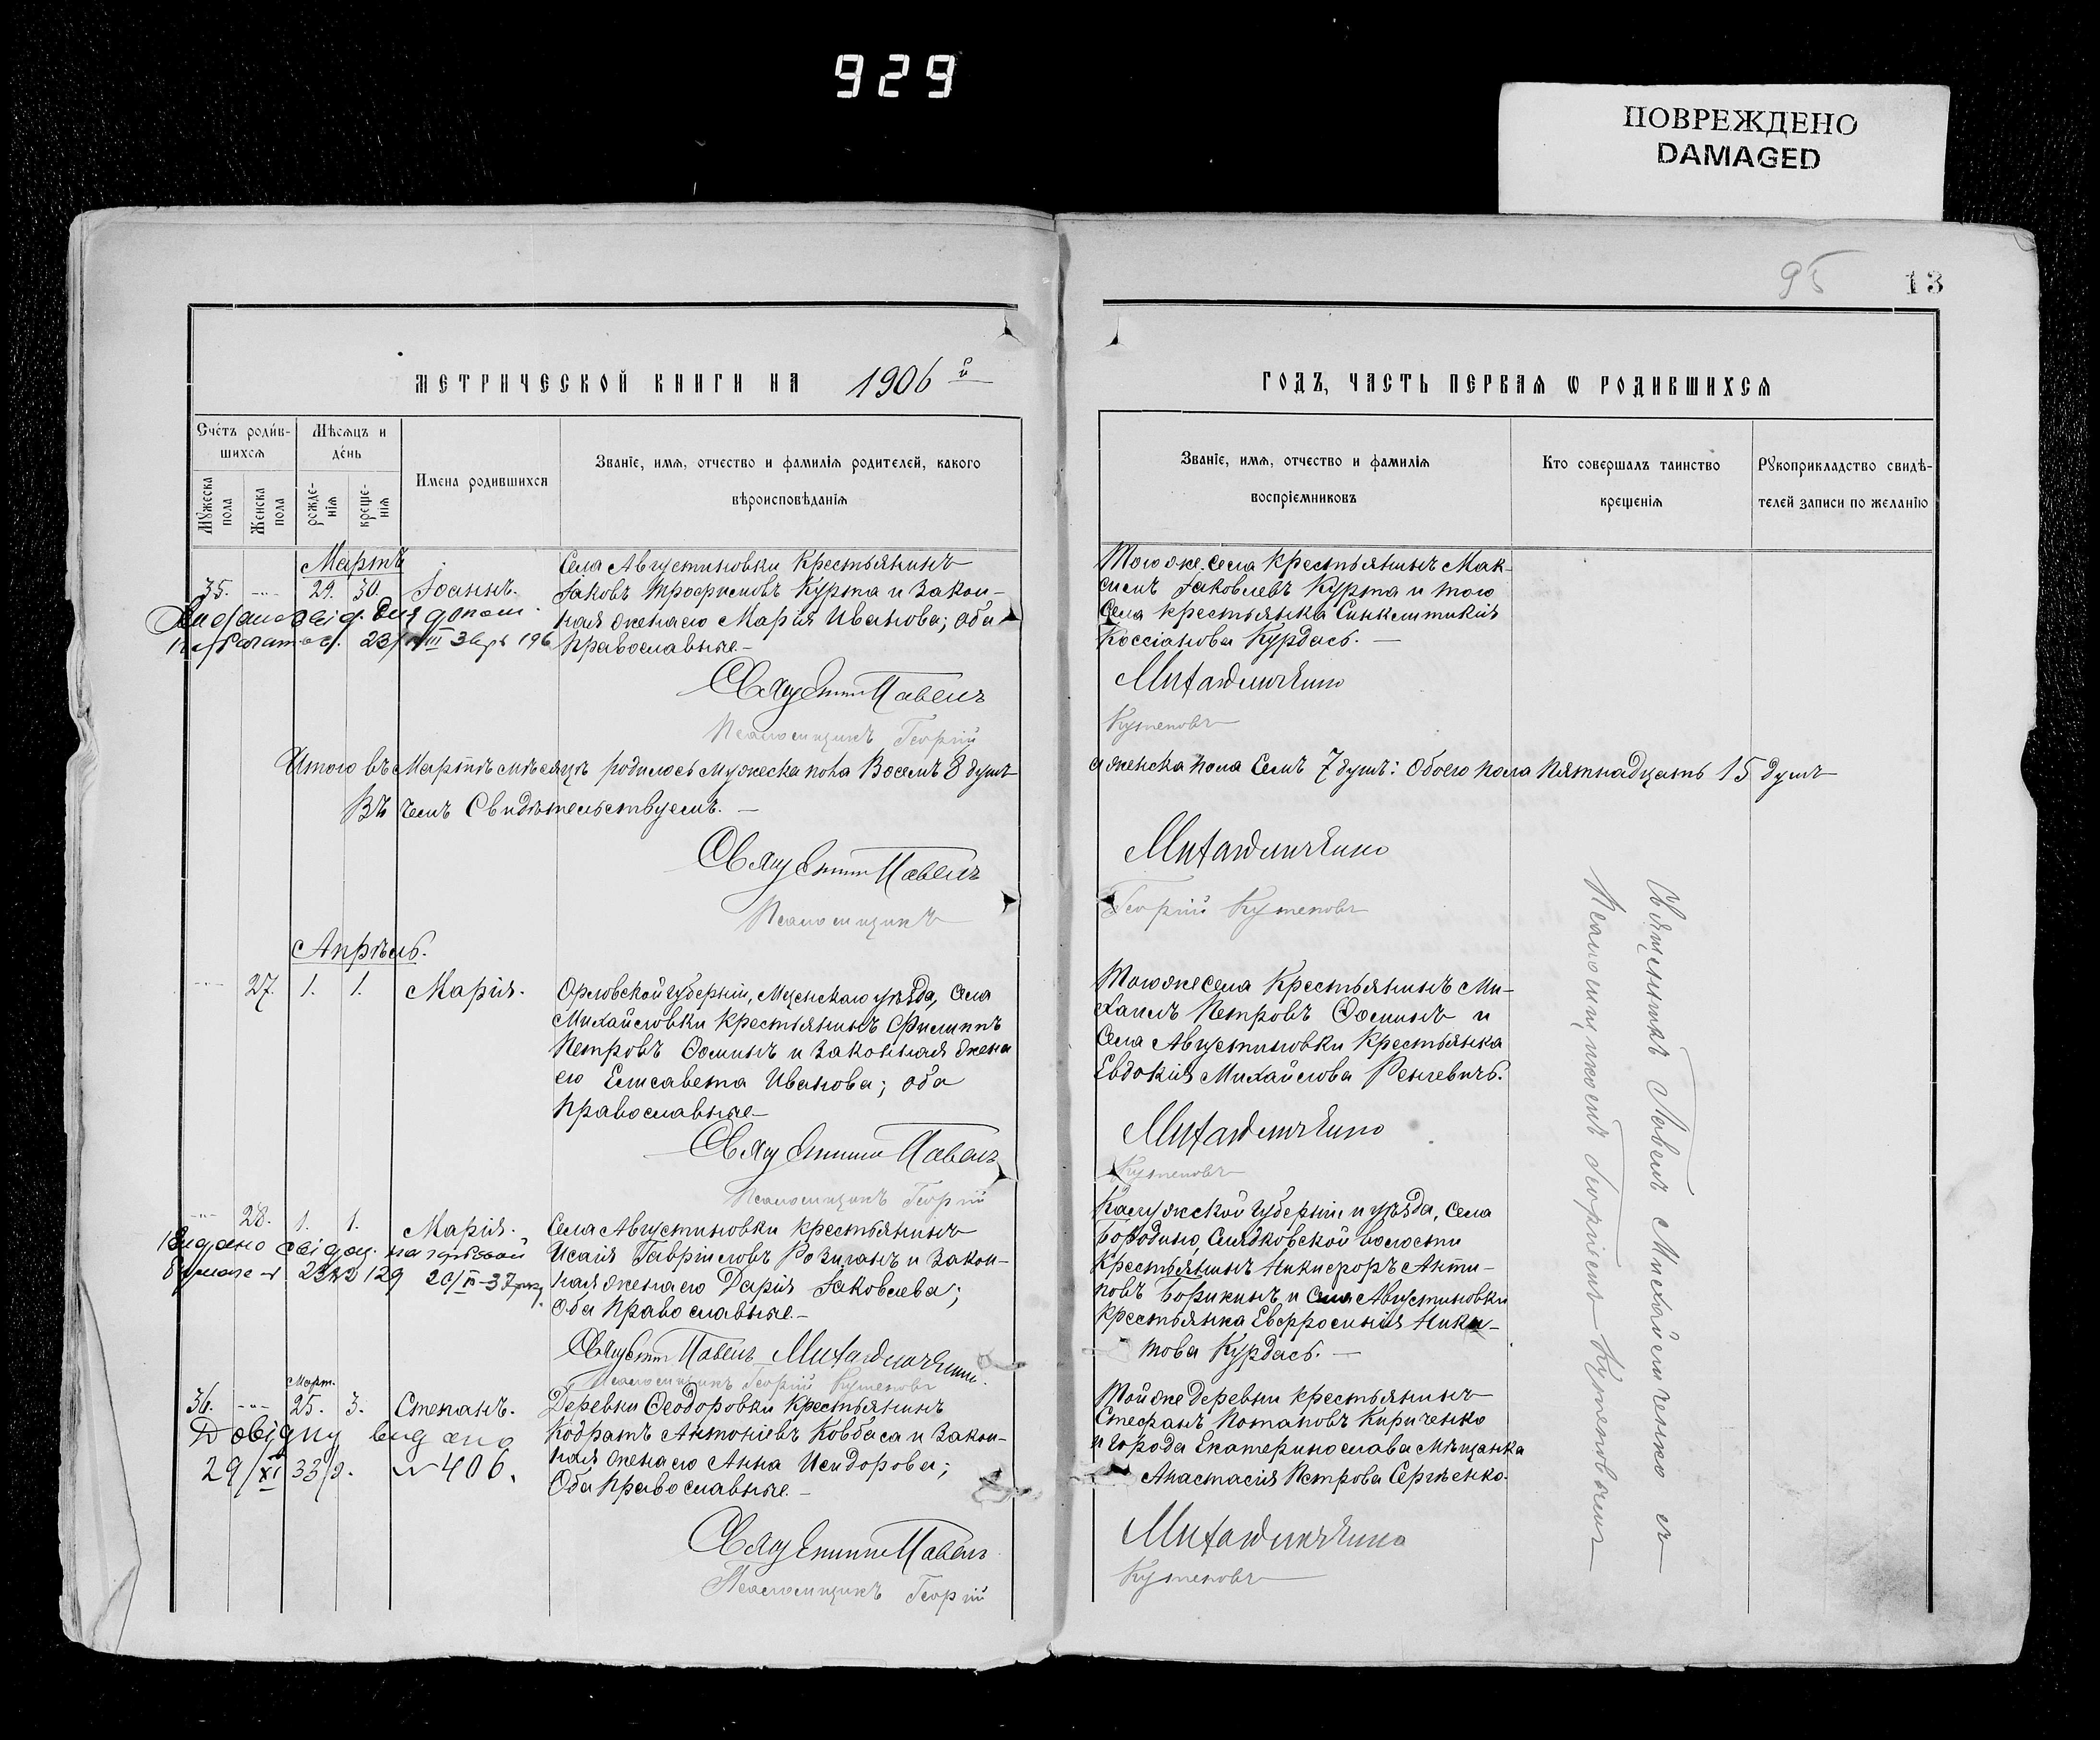 929
ПОВРЕЖДЕНО
DAMAGED
95
13
МЕТРИЧЕСКОЙ КНИГИ НА 1906 й
Счетъ родив-
шихся
Мѣсяцъ и
день
Мужеска
пола
Женска
пола
рожде-
нія
креще-
нія
Имена родившихся
Званіе, имя, отчество и фамилія родителей, какого
вѣроисповѣданія
Мартъ
35. 29. 30. Іоаннъ.
Села Августиновки крестьянинъ
Іаковъ Трофимовъ Курта и закон-
ная жена его Марія Иванова; оба
православные.
Священникъ Павелъ
Псаломщикъ Георгій
Итого въ Мартѣ мѣсяцѣ родилось мужеска пола Восемь 8 душъ
Въ чемъ Свидѣтельствуемъ.
Священникъ Павелъ
Псаломщикъ
Апрѣль.
27. 1. 1. Марія.
Орловской губерніи, Мценскаго уѣзда, села
Михайловки крестьянинъ Филиппъ
Петровъ Ѳоминъ и законная жена
его Елисавета Иванова; оба
православные
Священникъ Павелъ
Псаломщикъ Георгій
28. 1. 1. Марія.
Видано свідоц.
129 20/IX-37
Села Августиновки крестьянинъ
Исаія Гавріиловъ Розиганъ и закон-
ная жена его Дарія Іаковлева;
оба православные.
Священникъ Павелъ Михайличенко.
Псаломщикъ Георгій Кутеповъ
Март.
36. 25. 3. Стефанъ.
Довідку видано
29/XI 33 р. № 406.
Деревни Ѳеодоровки крестьянинъ
Кодратъ Антоніевъ Ковбаса и закон-
ная жена его Анна Исидорова;
Оба православные.
Священникъ Павелъ
Псаломщикъ Георгій
ГОДЪ, ЧАСТЬ ПЕРВАЯ Ѡ РОДИВШИХСЯ
Званіе, имя, отчество и фамилія
воспріемниковъ
Кто совершалъ таинство
крещенія
Рукоприкладство свидѣ-
телей записи по желанію
Того же села крестьянинъ Мак-
симъ Іаковлевъ Курта и того
села крестьянка Синклитикія
Кассіанова Курдасъ.
Михайличенко
Кутеповъ
а женска пола Семь 7 душъ: Обоего пола пятнадцать 15 душъ
Михайличенко
Георгій Кутеповъ
Того же села крестьянинъ Ми-
хаилъ Петровъ Ѳоминъ и
села Августиновки крестьянка
Евдокія Михайлова Ренгевичъ.
Михайличенко
Кутеповъ
Калужской губерніи и уѣзда, села
Бородино, волости
крестьянинъ Никифоръ Анти-
повъ Борикинъ и села Августиновки
крестьянка Евфросинія Ники-
това Курдасъ.
Той же деревни крестьянинъ
Стефанъ Потаповъ Кириченко
и города Екатеринослава мѣщанка
Анастасія Петрова Сергѣенко.
Михайличенко
Кутеповъ
Священникъ Павелъ Михайличенко съ
Псаломщикомъ Георгіемъ Кутеповымъ